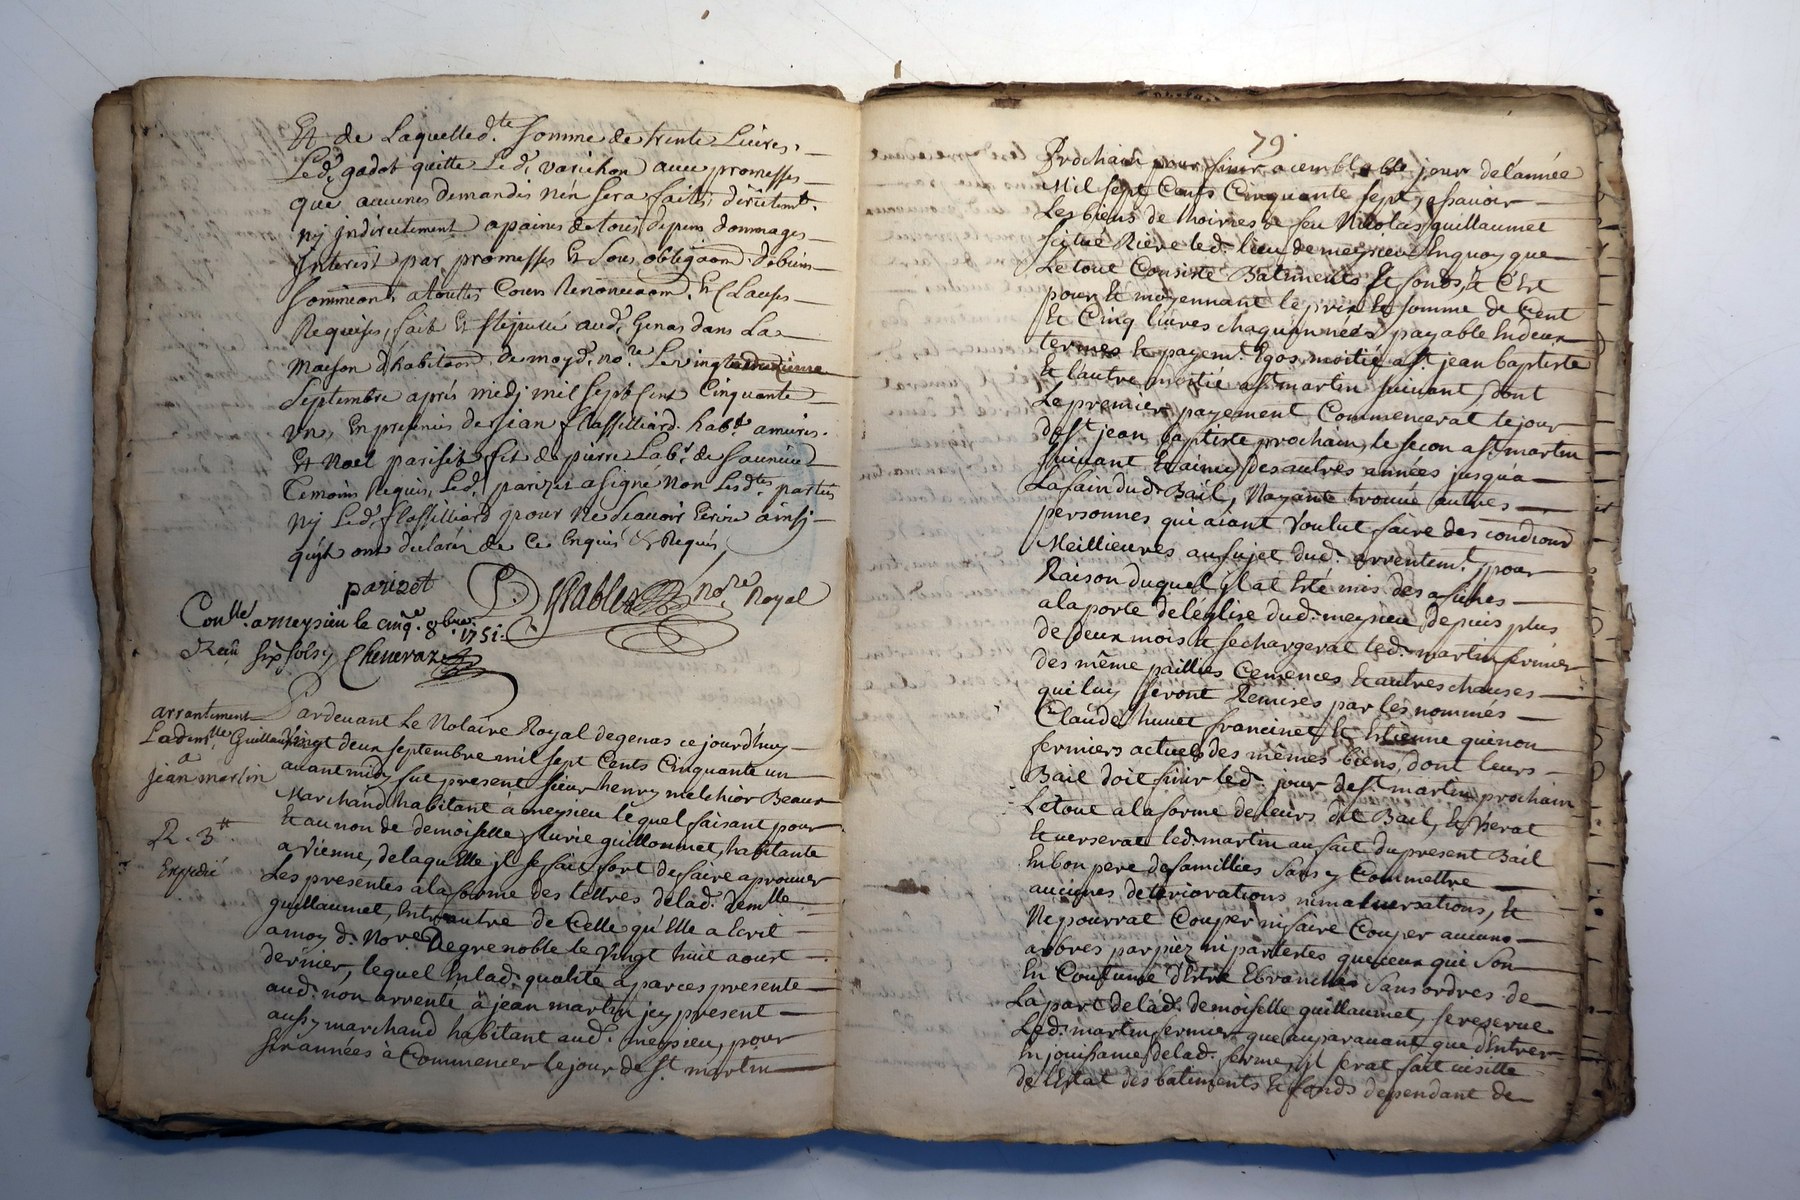 Et de Laquelled.te somme de trente Livres.
Led. gadot quitte Led. varichon avec promesses
que aucunes demandes n'en sera faittes dirêtemt.
ny jndirectement apaines de tous depens dommages
Interest par promesses Et sous obligaon. debiens
soumions. atouttes Cours Renonciaon. Et Clauses
Requises, fait Et stipullé aud. Genas dans La
Maison d'habitaon. de moyd. nore. Le vingt
Septembre aprés midj mil sept sent Cinquante
vn, En presence de jean flassilliard habt. amions.
Et Noel parisit fils de pierre Labr. de
Temoins Requis, Led. parizet asigné non Lesdtes. parties
Nij Led. flassilliard pour ne scavoir Ecrire ainsj
quils ont declarés de ce Enquis & Requis
parizet nore Royal
Conlle. a meysieu le cinqe. 8bre. 1751.
Reçu six sols Cheneraz
arrantement
Lademlle Guillaumet
a
jean martin
R. 3tt
Expedié
Pardevant Le Notaire Royal degenas ce jourd'huy
vingt deux septembre mil sept Cents Cinquante un
avant midy fut present sieur henry melchior Beaux
Marchand habitant à meysieu lequel faisant pour
Et au non de demoiselle fleurie guillommet, habitante
a vienne, delaquelle jl se fait fort defaire aprouver
Les presentes a la forme des lettres delad. demlle
guillaumet, Entreautre de Celle qu'Elle a Ecrit
a moy d. Nore. De grenoble le vingt huit aoust
dernier, lequel Enlad. qualité a par ces presente
aud. non arrente à jean martin jcy present
aussy marchand habitant aud. meysieu, pour
six années à Commencer le jour de St. martin
79
Prochain pour finir a cemblable jour de l'année
Mil sept Cents Cinquante sept, sçavoir
Les biens de hoirres de feu Nicolas guillaumet
situé Riere led. lieu de meysieu Enquoy que
Le tout Consiste Batiments Et fonds, Et C'Est
pour Et moyennant le prix Et somme de Cent
Et Cinq livres chaque année payable En deux
termes Et payemt. Egos moitié a St. jean baptiste
Et l'autre moitié a St. martin suivant, dont
Le premier payement Commencerat le jour
de St. jean baptiste prochain, le secon a St. martin
suivant Et ainsy des autres années jusqu'a
La fain dud. Bail, Nayant trouvé autres
personnes qui aiant voulut faire des condions
Meillieures au sujet dud. arrentemt. pour
Raison duquel jl at Eté mis des afiches
a la porte de l'eglise dud. meysieu depuis plus
de deux mois Et se chargerat led. martin fermier
des même paillies Cemences Et autres chauses
qui luy seront Remises par les nommés
Claude huuet francinet Et Etienne quenon
fermiers actuels des mêmes biens, dont leurs
Bail doit finir led. jour de St. martin prochain
Le tout a la forme de leurs dit Bail, Et
Et verserat led. martin au fait du present Bail
En bon pere de famillies sans y Commettre
aucunes deteriorations ni malversations, Et
Ne pourrat Couper ni faire Couper aucuns
arbres par piez ni par tertes que ceux qui son
En Coutume d'Etre Ebranchés sans ordres de
La part delad. demoiselle guillaumet, se reserve
Led. martin fermier que auparavant que d'Entrer
En jouissance delad. ferme, jl serat fait visitte
de l'Etat des batiments Et fonds dependant de